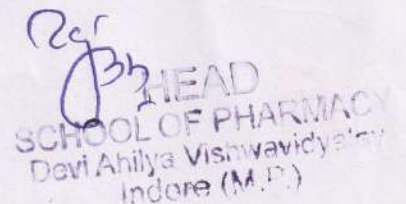 HEAD
SCHOOL OF PHARMACY
Devi Ahilya Vishwavidyalay
Indore (M.P.)